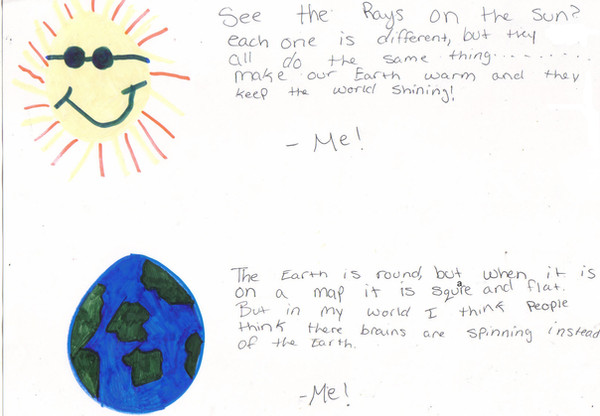 See the Rays on the Sun?
each one is different, but they
all do the same thing.........
make our Earth warm and they
keep the world shining!
- Me!
The Earth is round, but when it is
on a map it is square and flat.
But in my world I think People
think there brains are spinning instead
of the Earth.
-Me!